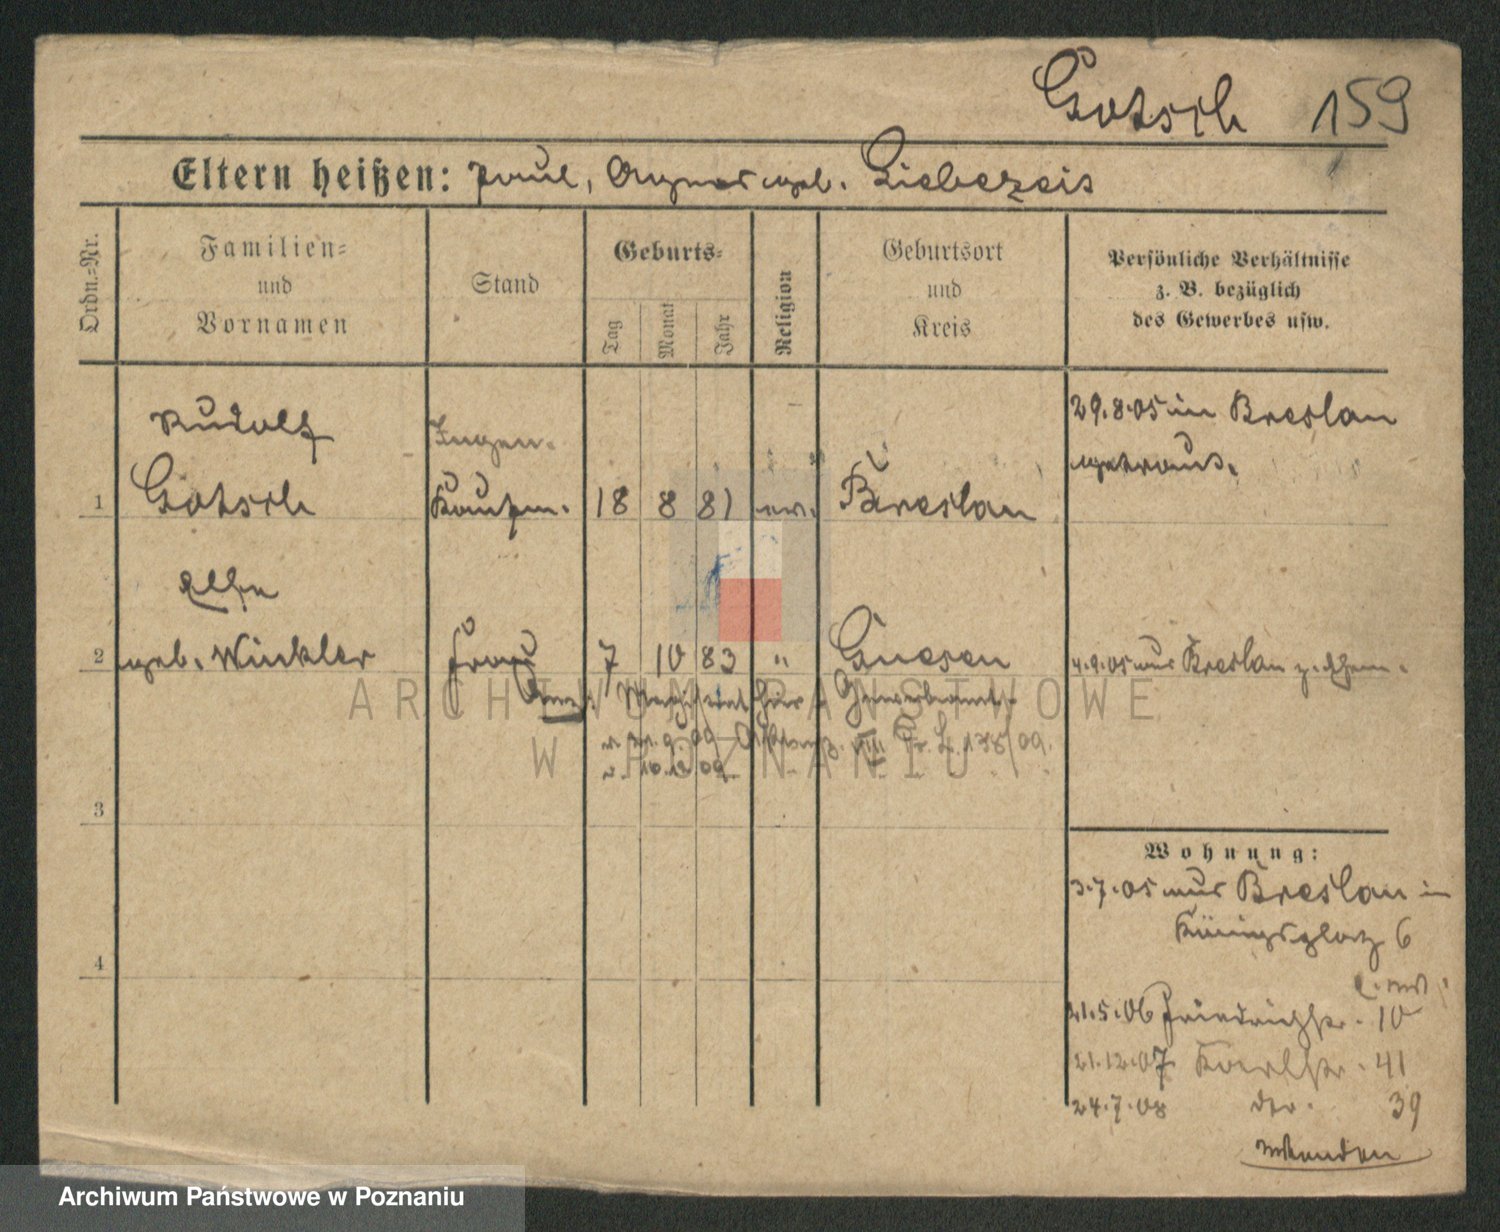 Gotsch 159
Eltern heißen: Paul, Agnes geb. Liebezeis
Ordn.=Nr.
Familien=
und
Vornamen
Stand
Geburts=
Tag
Monat
Jahr
Religion
Geburtsort
und
Kreis
Persönliche Verhältnisse
z. B. bezüglich
des Gewerbes usw.
Rudolf
Ingen.
29.8.05 in Breslau
getraut.
1 Gotsch Kaufm. 18 8 81 ev. Breslau
Else
2 geb. Winkler Frau 7 10 83 " Gnesen 4.9.05 aus Breslau z. Ehem.
3
Wohnung:
3.7.05 aus Breslau in
Königsplatz 6
4
21.5.06 Friedrichstr. 10
21.12.07 Karlstr. 41
24.7.08 do. 39
wenden
ARCHIWUM PAŃSTWOWE
W POZNANIU
Archiwum Państwowe w Poznaniu